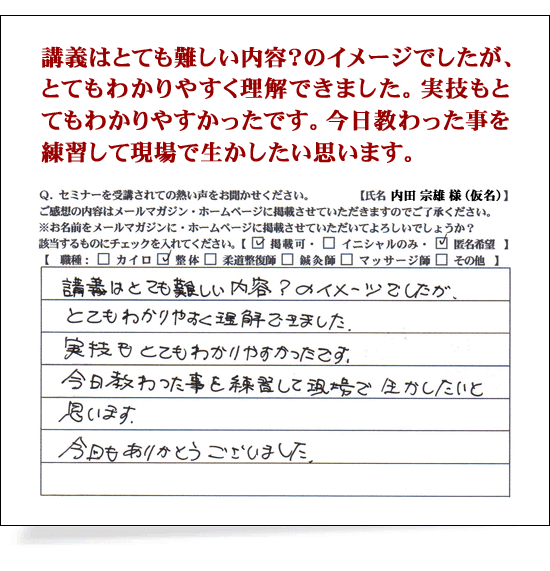 講義はとても難しい内容?のイメージでしたが、
とてもわかりやすく理解できました。実技もと
てもわかりやすかったです。今日教わった事を
練習して現場で生かしたい思います。
Q. セミナーを受講されての熱い声をお聞かせください。 【氏名 内田 宗雄 様（仮名）】
ご感想の内容はメールマガジン・ホームページに掲載させていただきますのでご了承ください。
※お名前をメールマガジンに・ホームページに掲載させていただいてよろしいでしょうか?
該当するものにチェックを入れてください。【 ☑ 掲載可・ □ イニシャルのみ・ ☑ 匿名希望 】
【 職種： □ カイロ ☑ 整体 □ 柔道整復師 □ 鍼灸師 □ マッサージ師 □ その他 】
講義はとても難しい内容?のイメージでしたが、
とてもわかりやすく理解できました.
実技もとてもわかりやすかったです.
今日教わった事を練習して現場で生かしたいと
思います.
今日もありがとうございました.